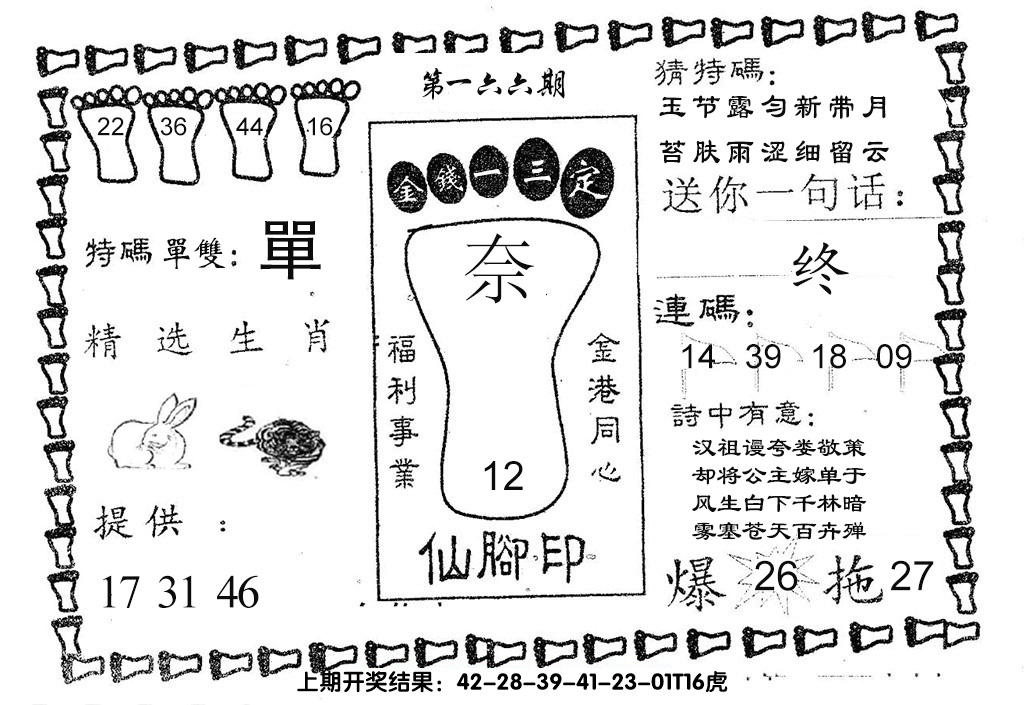 第一六六期
22 36 44 16
特碼單雙：單
精选生肖
提供：
17 31 46
金錢一三定
奈
福利事業
金港同心
12
仙腳印
猜特碼：
玉节露匀新带月
苔肤雨涩细留云
送你一句话：
终
連碼：
14 39 18 09
詩中有意：
汉祖谩夸娄敬策
却将公主嫁单于
风生白下千林暗
雾塞苍天百卉殚
爆 26 拖 27
上期开奖结果：42-28-39-41-23-01T16虎